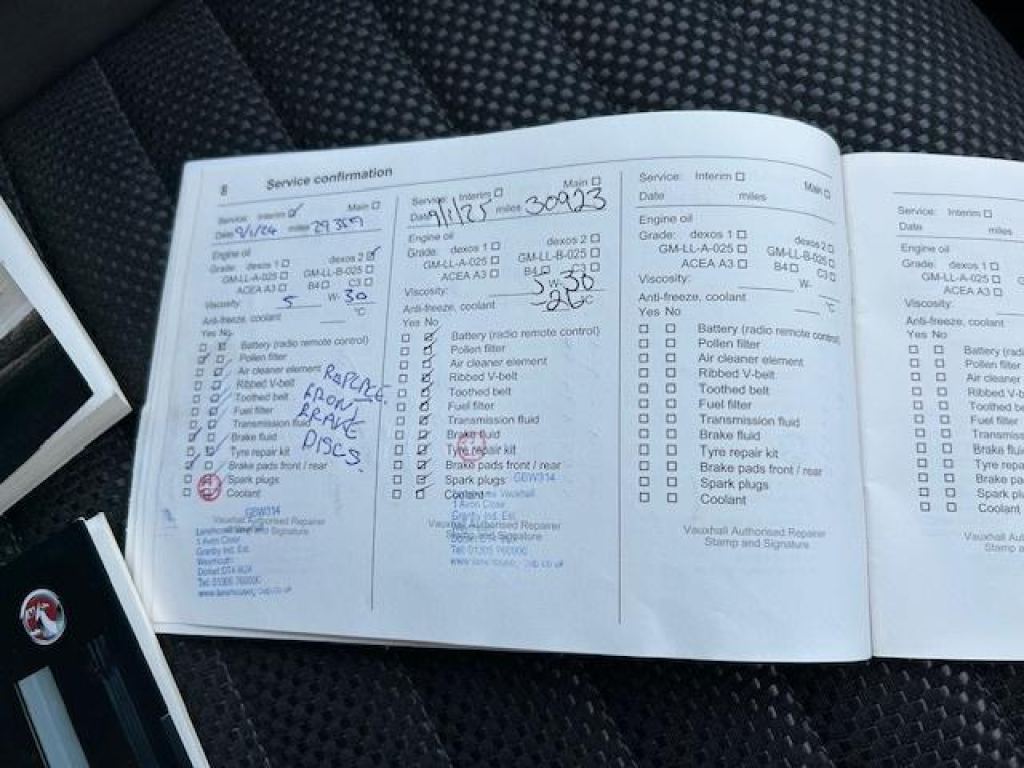 8 Service confirmation
Service: Interim ☑ Main ☐
Date 9/1/24 miles 29359
Engine oil
Grade: dexos 1 ☐ dexos 2 ☑
GM-LL-A-025 ☐ GM-LL-B-025 ☐
ACEA A3 ☐ B4 ☐ C3 ☐
Viscosity: 5 W- 30
Anti-freeze, coolant °C
Yes No
Battery (radio remote control)
Pollen filter
Air cleaner element
Ribbed V-belt
Toothed belt
Fuel filter
Transmission fluid
Brake fluid
Tyre repair kit
Brake pads front / rear
Spark plugs
Coolant
REPLACE
FRONT
BRAKE
DISCS.
GBW314
Vauxhall Authorised Repairer
Stamp and Signature
1 Avon Close
Granby Ind. Est.
Weymouth
Dorset DT4 9UX
Tel: 01305 760000
Service: Interim ☐ Main ☐
Date 9/1/25 miles 30923
Engine oil
Grade: dexos 1 ☐ dexos 2 ☐
GM-LL-A-025 ☐ GM-LL-B-025 ☐
ACEA A3 ☐ B4 ☐ C3 ☐
Viscosity: 5 W- 30
Anti-freeze, coolant -26 °C
Yes No
Battery (radio remote control)
Pollen filter
Air cleaner element
Ribbed V-belt
Toothed belt
Fuel filter
Transmission fluid
Brake fluid
Tyre repair kit
Brake pads front / rear
Spark plugs
Coolant
GBW314
Vauxhall
1 Avon Close
Granby Ind. Est.
Vauxhall Authorised Repairer
Stamp and Signature
Tel: 01305 760000
Service: Interim ☐ Main ☐
Date miles
Engine oil
Grade: dexos 1 ☐ dexos 2 ☐
GM-LL-A-025 ☐ GM-LL-B-025 ☐
ACEA A3 ☐ B4 ☐ C3 ☐
Viscosity: W-
Anti-freeze, coolant °C
Yes No
Battery (radio remote control)
Pollen filter
Air cleaner element
Ribbed V-belt
Toothed belt
Fuel filter
Transmission fluid
Brake fluid
Tyre repair kit
Brake pads front / rear
Spark plugs
Coolant
Vauxhall Authorised Repairer
Stamp and Signature
Service: Interim ☐
Date miles
Engine oil
Grade: dexos 1 ☐
GM-LL-A-025 ☐
ACEA A3 ☐
Viscosity:
Anti-freeze, coolant
Yes No
Battery (radio
Pollen filter
Air cleaner
Ribbed V-b
Toothed be
Fuel filter
Transmiss
Brake flui
Tyre repa
Brake pa
Spark plu
Coolant
Vauxhall
Stamp a